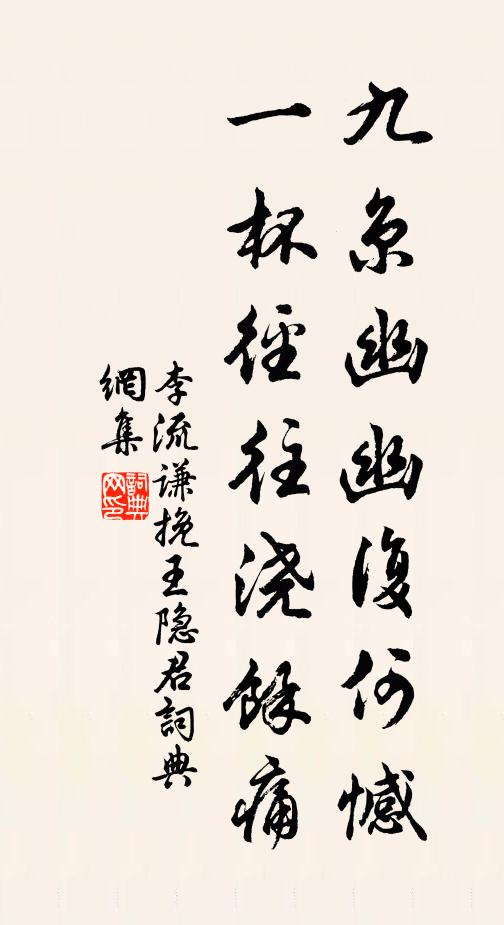 九京幽幽復何憾
一杯徑往浇餘痛
李流谦挽王隐君詞典
網集
詞典网印